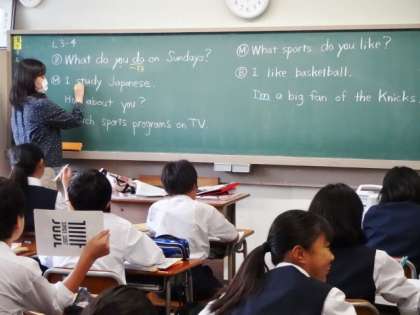 L3-4
Ⓑ What do you do on Sundays?
Ⓜ I study Japanese.
How about you?
sports programs on TV.
Ⓜ What sports do you like?
Ⓑ I like basketball.
I'm a big fan of the Knicks.